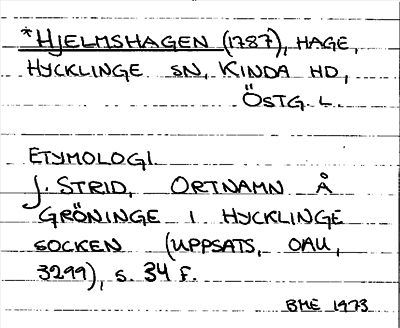 *HJELMSHAGEN (1787), HAGE,
HYCKLINGE SN, KINDA HD,
ÖSTG. L.
ETYMOLOGI
J. STRID, ORTNAMN Å
GRÖNINGE I HYCKLINGE
SOCKEN (UPPSATS, OAU,
3299), S. 34 F.
BME 1973